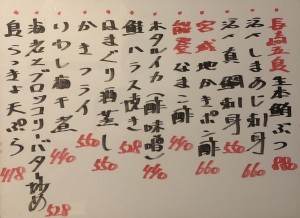 長崎五島 生本鮪ぶつ 880
活〆しまあじ刺身 660
活〆真鯛刺身 550
宮城 地かきポン酢 660
能登 なまこ酢
ホタルイカ(酢味噌) 440
鮭ハラス焼き 528
はまぐり酒蒸し 550
かきフライ 550
いわし 煮 440
海老とブロッコリーバター炒め 528
島らっきょ天ぷら 418